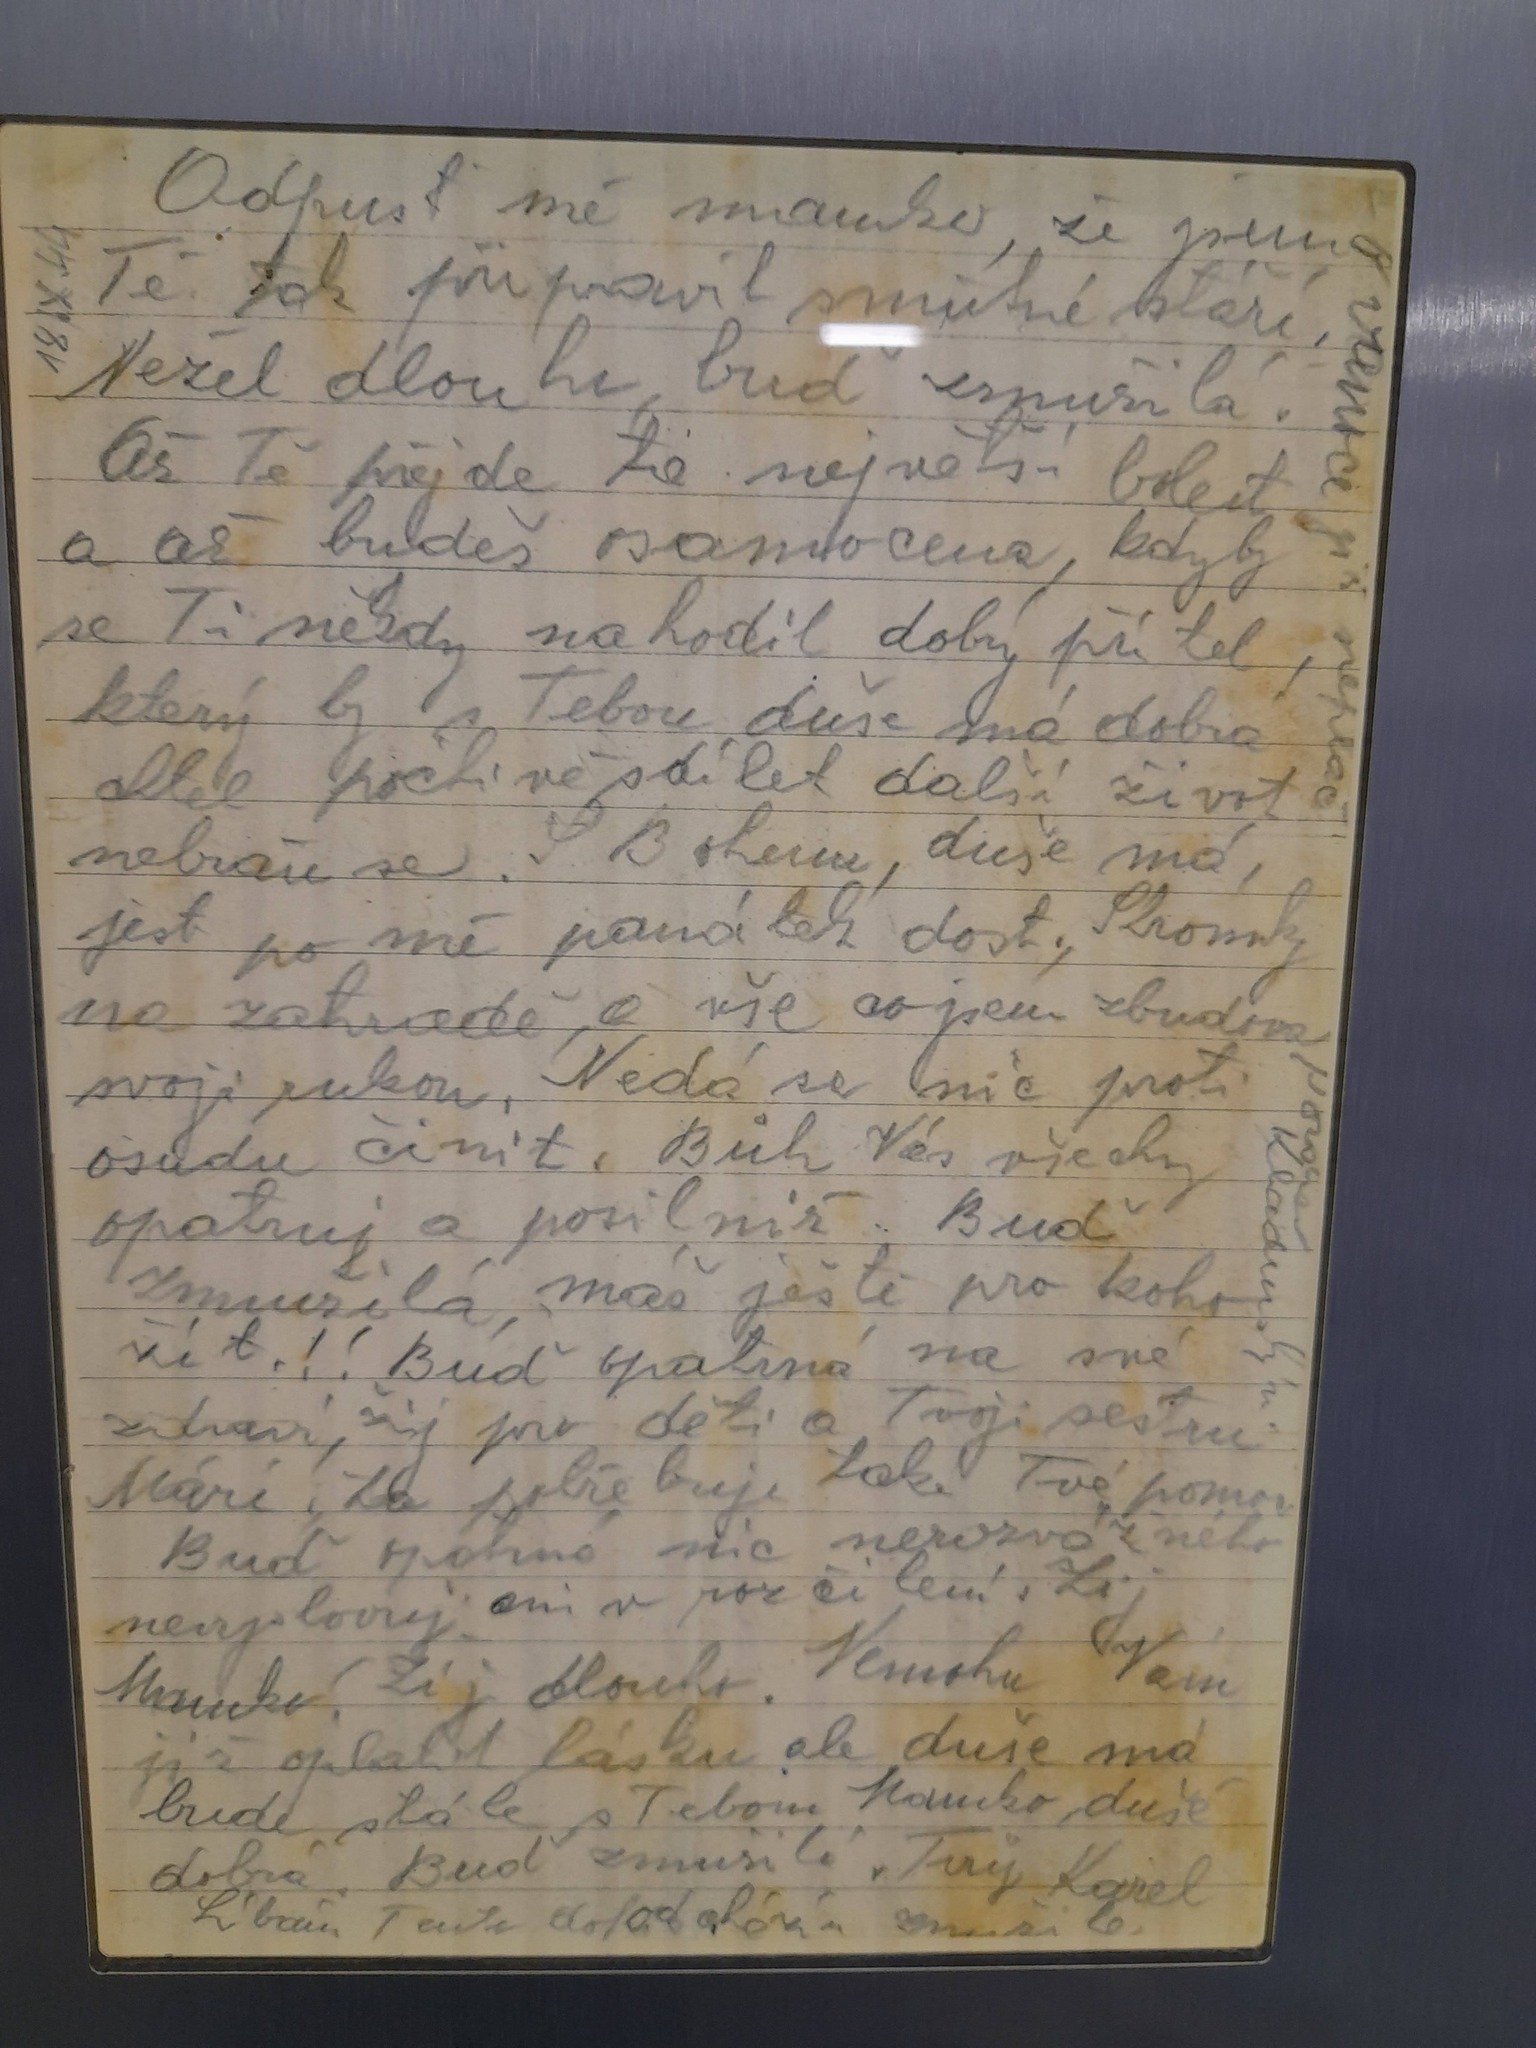 Odpusť mě mamko, že jsem
Tě tak připravil smutné stáří,
Nežel dlouho, buď zmužilá.
Až Tě přejde ta největší bolest
a až budeš osamocena, kdyby
se Ti někdy nahodil dobrý přítel,
který by s Tebou, duše má dobrá
chtěl počtivě sdílet další život
nebraň se. S Bohem, duše má,
jest po mě památek dost, Stromky
na zahradě, a vše co jsem zbudoval
svoji rukou. Nedá se nic proti
osudu činit. Bůh Vás všechny
opatruj a posilniž. Buď
zmužilá, máš ještě pro koho
žít.!! Buď opatrná na své
zdraví, žij pro děti a Tvoji sestru
Mári, ta potřebuje také Tvé pomoci
Buď opatrná nic nerozvážného
nevyslovuj ani v rozčilení. Žij
Mamko! Žij dlouho. Nemohu Vám
již oplatit lásku, ale duše má
bude stále s Tebou Mamko, duše
dobrá. Buď zmužilá. Tvůj Karel
Líbám Tento odcházím zmužile.
18.IX.44
O vánoce již neplač
pozdrav Kladenským